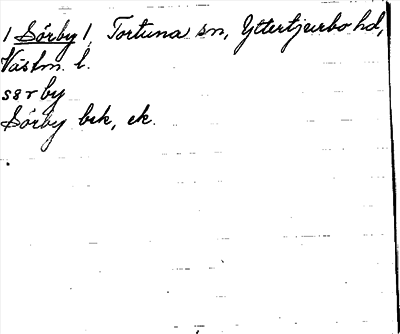 1 Sörby 1, Tortuna sn, Yttertjurbo hd,
Västm. l.
sör by
Sörby bsk, ek.